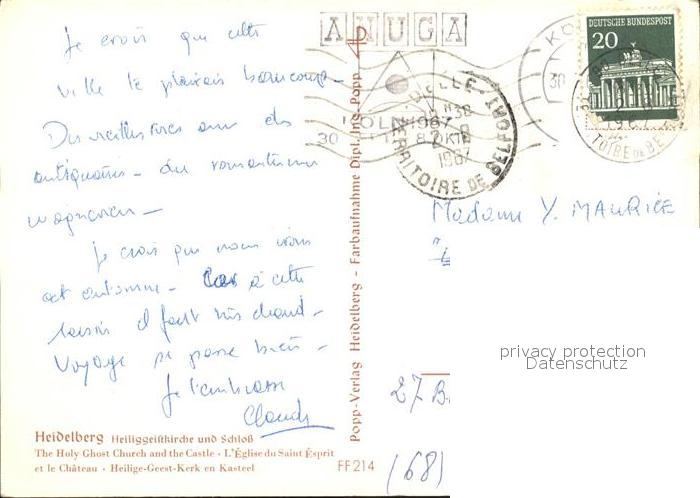 Je crois que cette
ville te plairait beaucoup -
Des vieilles rues avec des
antiquaires - du romantisme
wagnerien -
Je crois que nous irons
cet automne - Car à cette
saison il fait très chaud -
Voyage se passe bien -
Je t'embrasse
Claude
Heidelberg Heiliggeistkirche und Schloß
The Holy Ghost Church and the Castle · L'Église du Saint Ésprit
et le Château · Heilige-Geest-Kerk en Kasteel
FF 214
Popp-Verlag Heidelberg - Farbaufnahme Dipl. Ing. Popp
ANUGA
KÖLN 1967
30
8.OKT.
DELLE
1967
TERRITOIRE DE BELFORT
KÖ
30
DEUTSCHE BUNDESPOST
20
TOIRE DE BE
Madame Y. MAURICE
27 B
(68)
privacy protection
Datenschutz